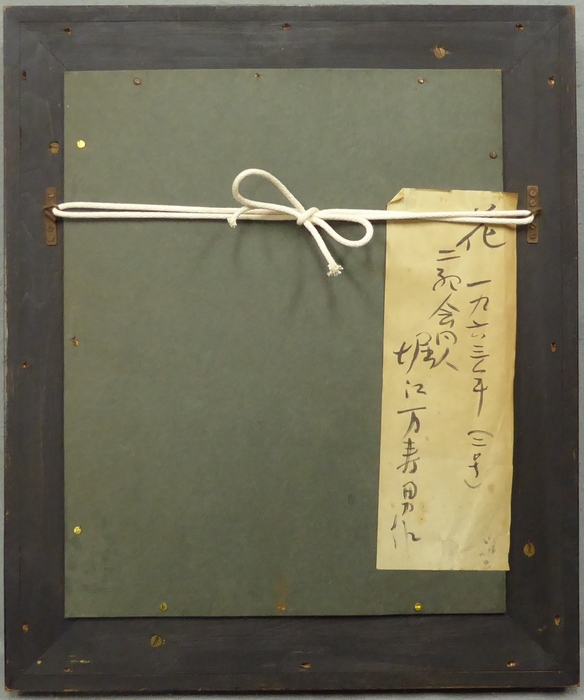 花 一九六三年(三号)
二紀会同人
堀江万寿男作